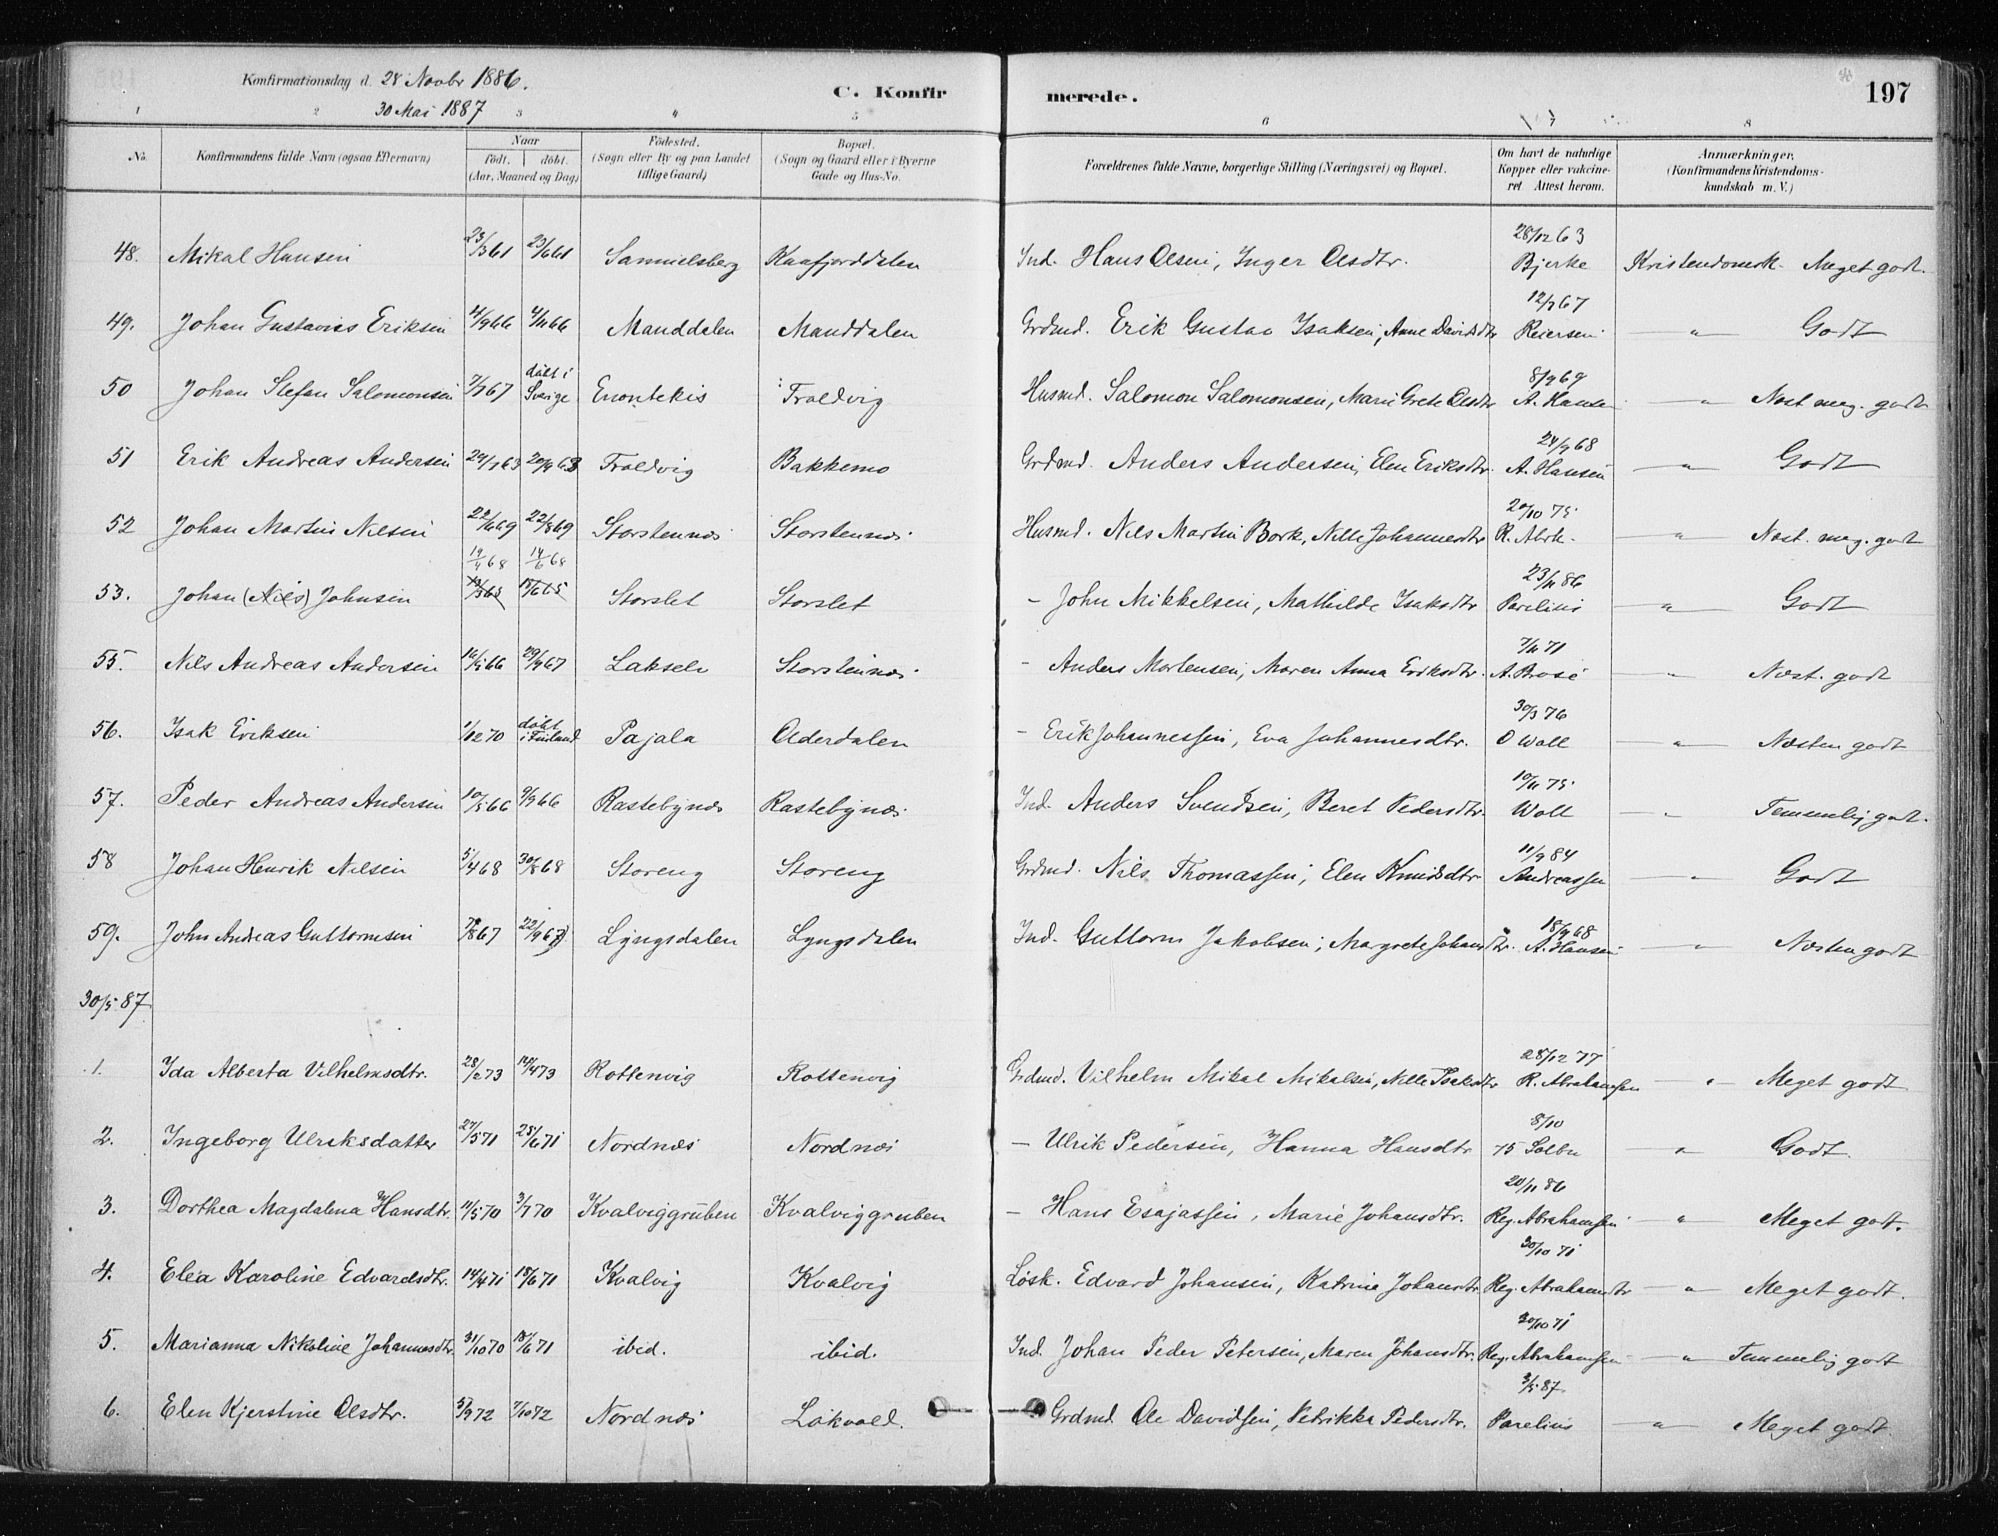 Konfirmationsdag d. 28 Novbr 1886.
30 Mai 1887
C. Konfirmerede.
197
1 2 3 4 5 6 7 8
No. Konfirmandens fulde Navn (ogsaa Efternavn) Naar født. døbt. (Aar, Maaned og Dag) Fødested. (Sogn eller By og paa Landet tillige Gaard) Bopæl. (Sogn og Gaard eller i Byerne Gade og Hus-No. Forældrenes fulde Navne, borgerlige Stilling (Næringsvei) og Bopæl. Om havt de naturlige Kopper eller vakcineret. Attest herom. Anmærkninger. (Konfirmandens Kristendomskundskab m. V.)
48. Mikal Hansen 23/3 61 23/6 61 Samuelsberg Kaafjorddalen Ind. Hans Olsen, Inger Olsdtr. 28/12 63 Bjerke Kristendomsk. Meget godt.
49. Johan Gustavius Eriksen 4/9 66 4/11 66 Manddalen Manddalen Grdmd. Erik Gustav Isaksen, Anne Davidsdtr 12/7 67 Reiersen " Godt
50 Johan Stefan Salomonsen 7/7 67 døbt i Sverige Enontekis Troldvig Husmd. Salomon Salomonsen, Marie Grete Olsdtr 8/9 69 A. Hansen " Næst meg. godt
51 Erik Andreas Andersen 24/7 63 20/9 63 Troldvig Bakkemo Grdmd. Anders Andersen, Elen Eriksdtr. 24/9 68 A. Hansen " Godt
52 Johan Martin Nilsen 22/6 69 22/8 69 Storstennæs Storstennæs Husmd. Nils Martin Bork, Nille Johannesdtr 20/10 75 R. Abrh. " Næst. meg. godt
14/4 68 14/6 68
53. Johan (Nils) Johnsen Storslet Storslet - John Mikkelsen, Mathilde Isaksdtr 23/11 86 Parelius " Godt
55. Nils Andreas Andersen 16/5 66 29/9 67 Lakselv Storstennæs - Anders Mortensen, Maren Anna Eriksdtr. 7/11 71 A. Brose " Næst. godt
56. Isak Eriksen 1/12 70 døbt i Finland Pajala Olderdalen - Erik Johannessen, Eva Johannesdtr. 30/3 76 O Woll " Næsten godt
57. Peder Andreas Andersen 10/5 66 9/9 66 Rastebynæs Rastebynæs Ind. Anders Svendsen, Beret Pedersdtr. 10/11 75 Woll " Temmelig godt.
58 Johan Henrik Nilsen 5/4 68 30/8 68 Storeng Storeng Grdmd. Nils Thomassen, Elen Knudsdtr 11/9 84 Andreassen " Godt
59. John Andreas Guttormsen 7/8 67 22/9 67 Lyngsdalen Lyngsdalen Ind. Guttorm Jakobsen, Margrete Johansdtr. 18/9 68 A. Hansen " Næsten godt
30/5 87
1. Ida Alberta Vilhelmsdtr. 28/2 73 14/4 73 Rottenvig Rottenvig Grdmd. Vilhelm Mikal Mikalsen, Nille Isaksdtr 28/12 77 R. Abrahamsen " Meget godt
2. Ingeborg Ulriksdatter 27/5 71 25/6 71 Nordnæs Nordnæs - Ulrik Pedersen, Hanna Hansdtr 8/10 75 Solbu " Godt.
3. Dorthea Magdalena Hansdtr. 11/5 70 3/7 70 Kvalviggruben Kvalviggruben - Hans Esajassen, Marie Johansdtr. 20/11 86 Reg. Abrahamsen " Meget godt.
4. Elea Karoline Edvardsdtr. 14/4 71 18/6 71 Kvalvig Kvalvig Løsk. Edvard Johansen, Katrine Johansdtr. 30/10 71 Reg. Abrahamsdtr " Meget godt.
5. Marianna Nikoline Johannesdtr. 31/10 70 18/6 71 ibid. ibid. Ind. Johan Peder Petersen, Maren Johansdtr. 30/10 71 Reg. Abrahamsen " Temmelig godt
6. Elen Kjerstine Olsdtr. 5/9 72 7/10 72 Nordnæs Løkvold. Grdmd. Ole Davidsen, Petrikka Pedersdtr. 3/5 87. Parelius " Meget godt.